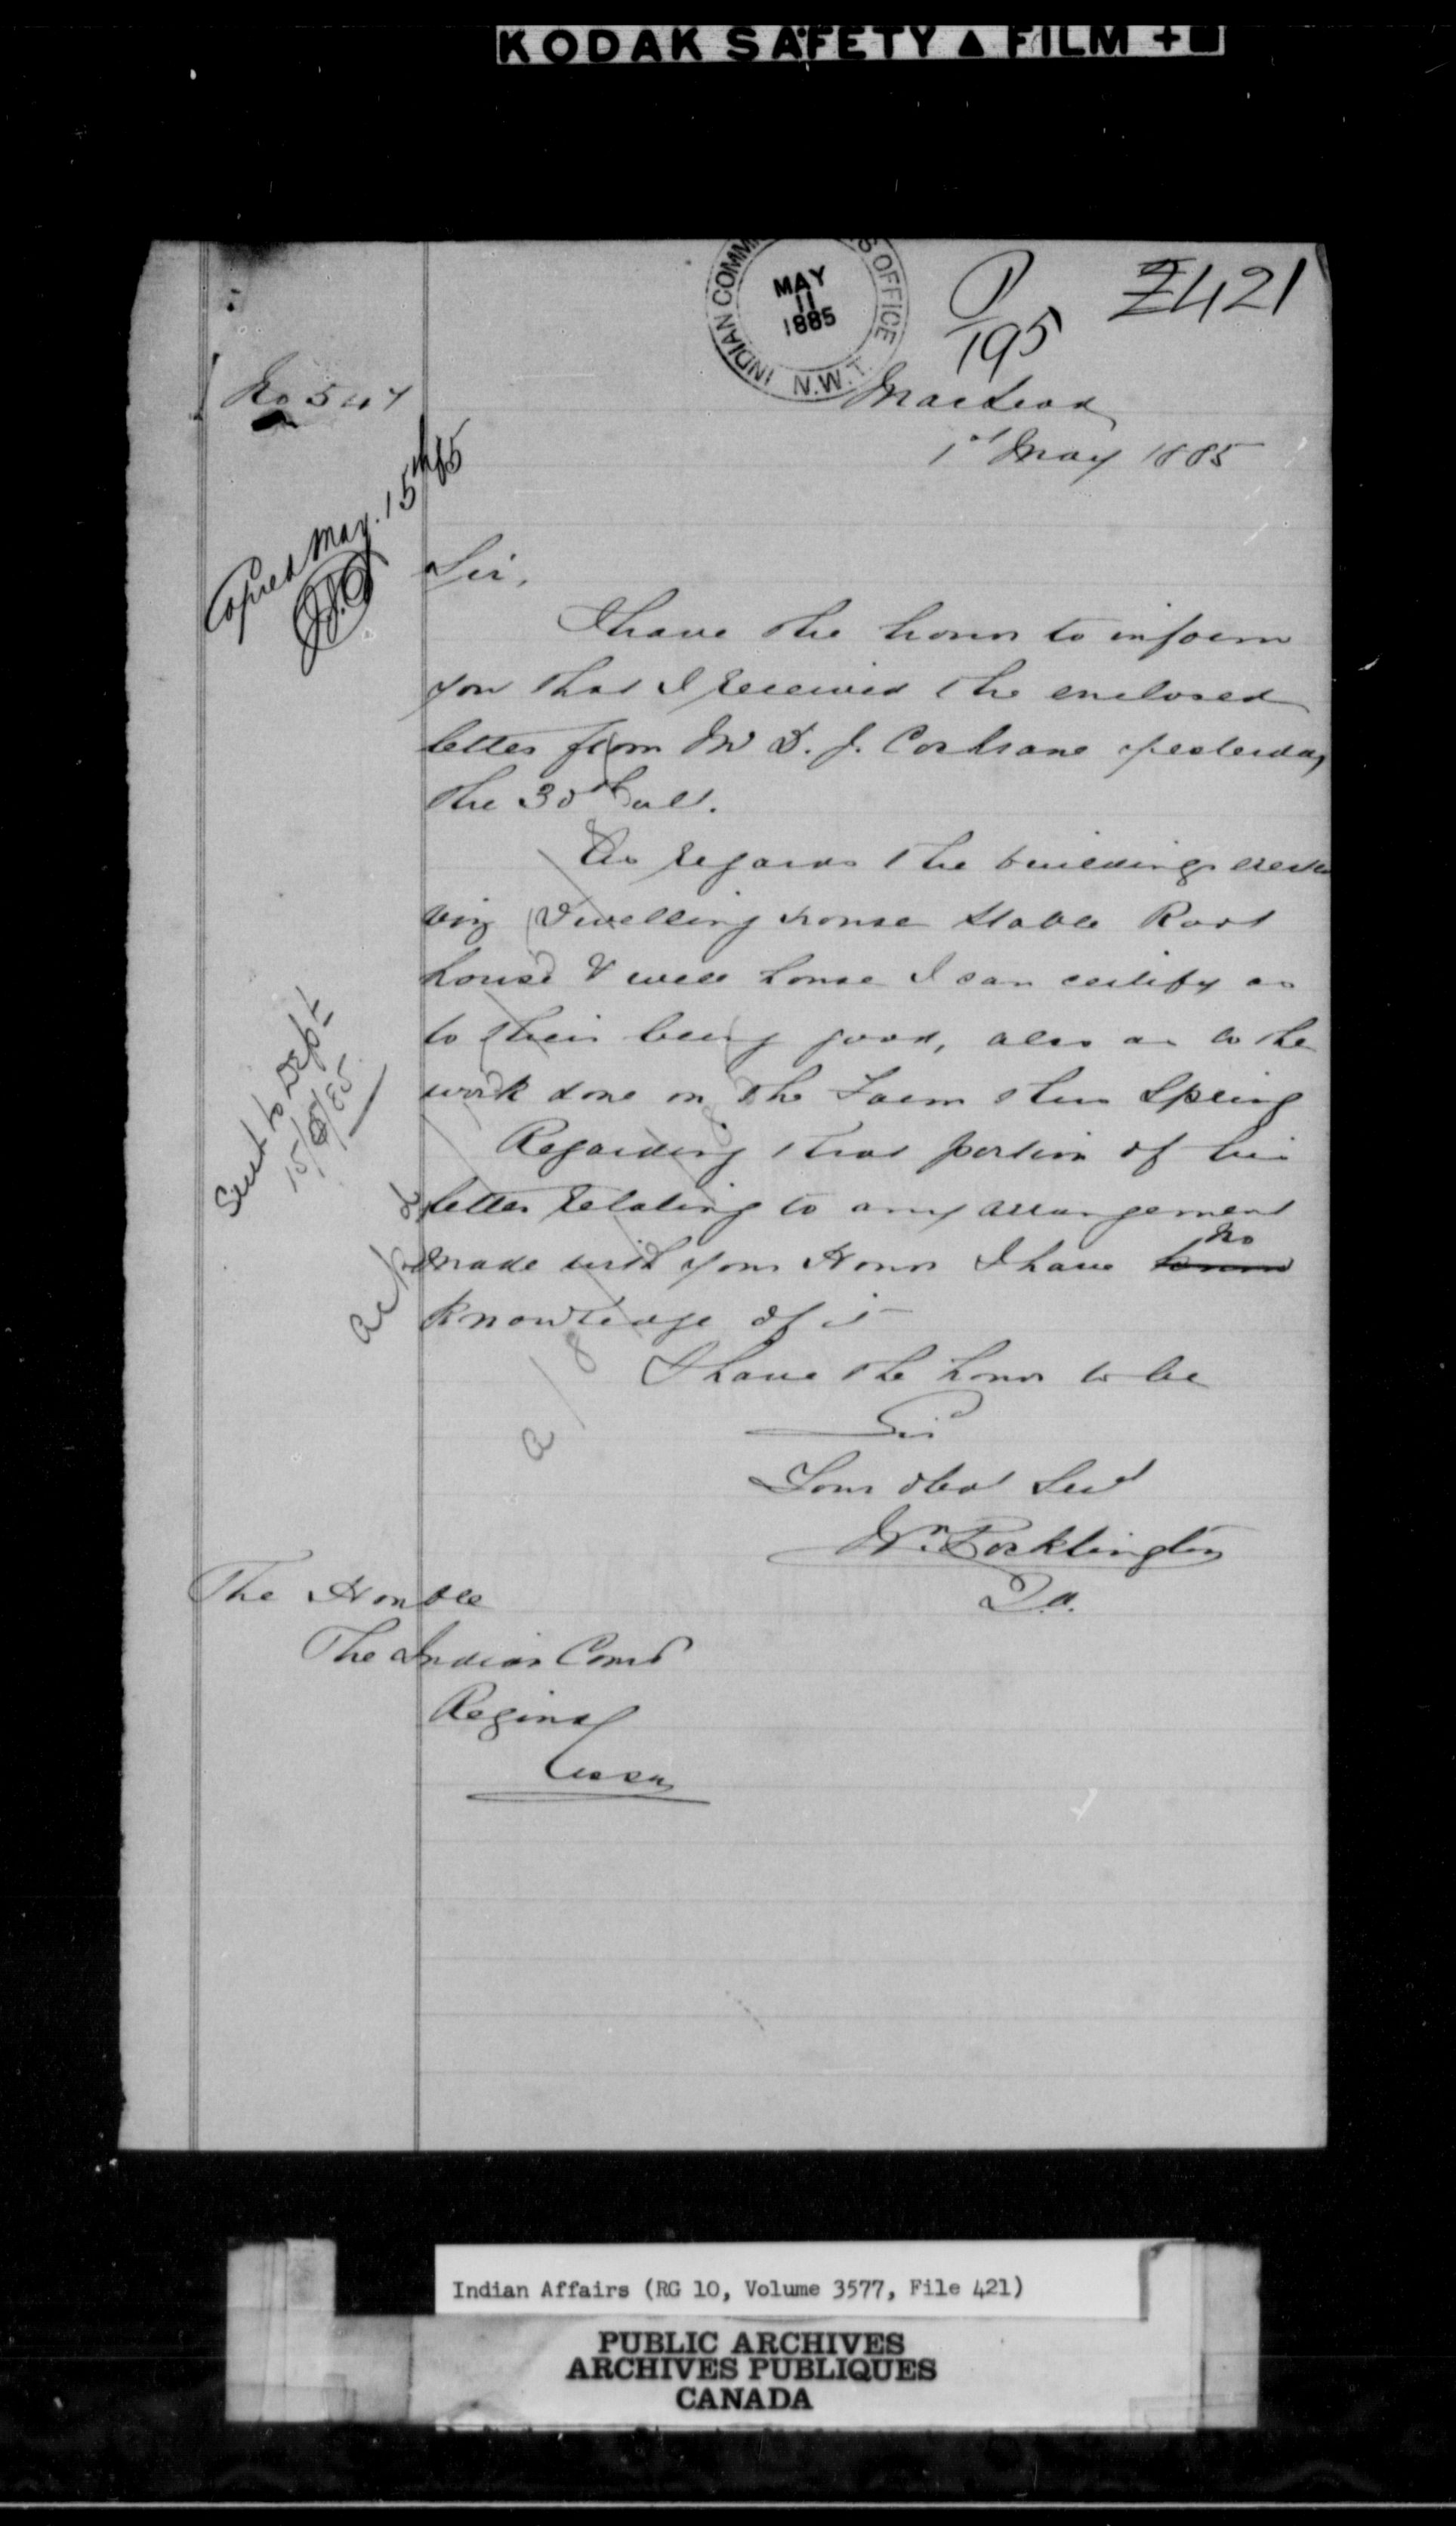 KODAK SAFETY ▲ FILM +
INDIAN COMM S OFFICE
MAY
11
1885
N.W.T.
P/195
Z421
No 547
MacLeod
1st May 1885
Copied May. 15th/85
Sir,
I have the honor to inform
you that I received the enclosed
letter from Mr D. J. Cochrane yesterday
the 30th ult.
As regards the buildings erected
viz Dwelling house Stable Root
house & well house I can certify as
to their being good, also as to the
work done on the Farm this Spring
Sent to Dept
15/5/85
Regarding that portion of his
letter relating to any arrangement
made with your Honor I have no
knowledge of it
Ackd
a/8
I have the honor to be
Sir
Your obdt Servt
Wm. Pocklington
I.A.
The Honble
The Indian Comr
Regina
Assa
Indian Affairs (RG 10, Volume 3577, File 421)
PUBLIC ARCHIVES
ARCHIVES PUBLIQUES
CANADA